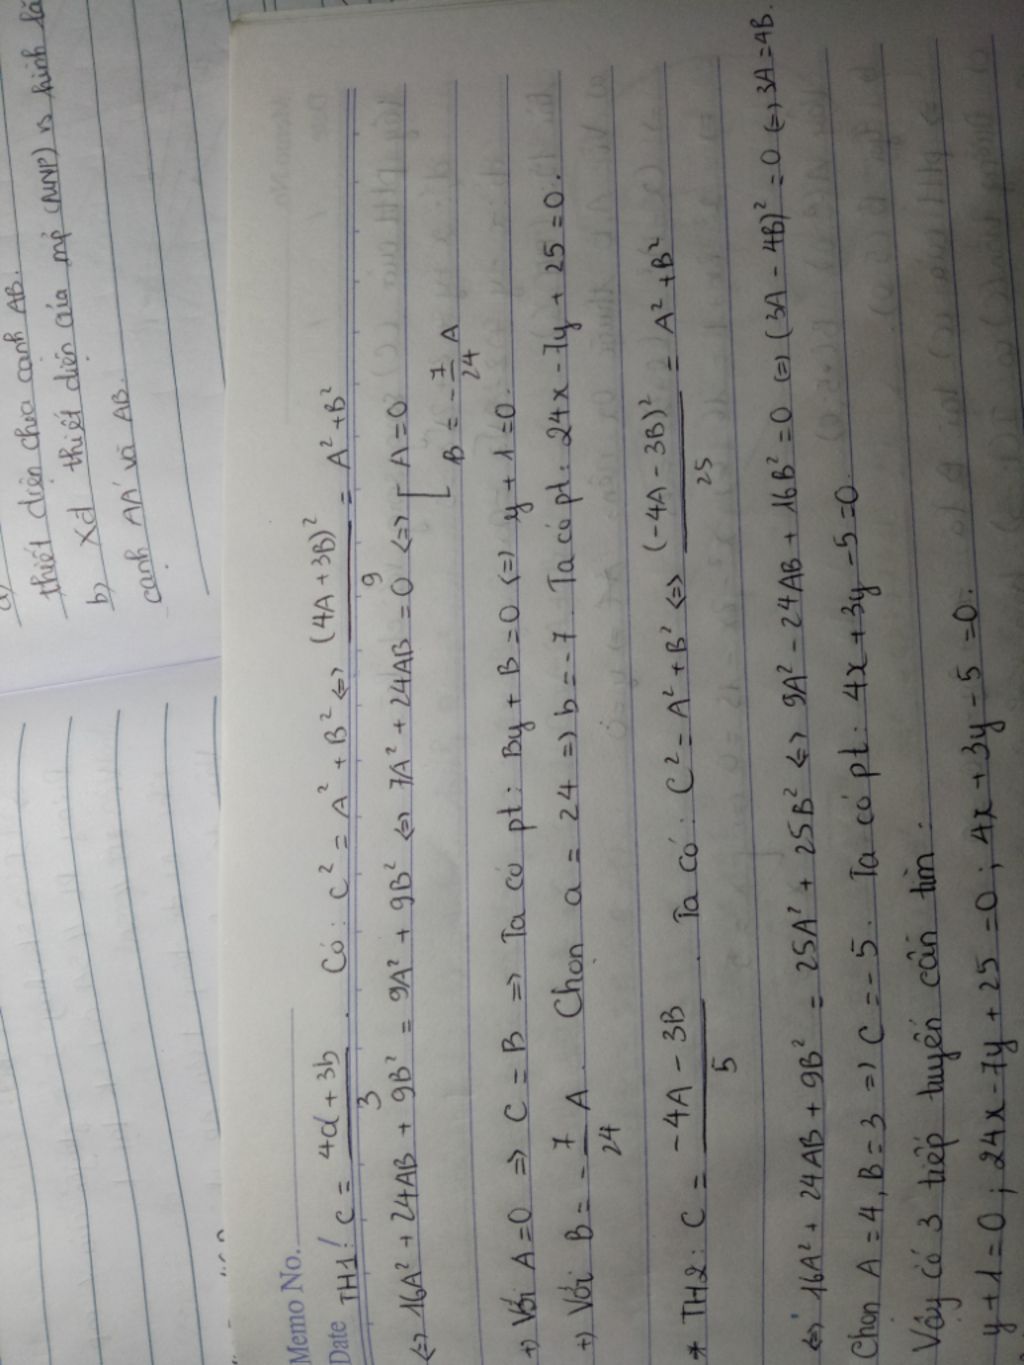 a)
thiết diện chứa cạnh AB.
b) Xđ thiết diện của mp (MNP) vs hình
cạnh AA' và AB.
Memo No.
Date
TH1: C = \frac{4a + 3b}{3}. Có: C² = A² + B² <=> \frac{(4A + 3B)²}{9} = A² + B²
<=> 16A² + 24AB + 9B² = 9A² + 9B² <=> 7A² + 24AB = 0 <=> [ A = 0
B = -\frac{7}{24} A
+) Với A = 0 => C = B => Ta có pt: By + B = 0 <=> y + 1 = 0.
+) Với B = -\frac{7}{24} A. Chọn a = 24 => b = -7. Ta có pt: 24x - 7y + 25 = 0.
* TH2: C = \frac{-4A - 3B}{5}. Ta có: C² = A² + B² <=> \frac{(-4A - 3B)²}{25} = A² + B²
<=> 16A² + 24AB + 9B² = 25A² + 25B² <=> 9A² - 24AB + 16B² = 0 <=> (3A - 4B)² = 0 <=> 3A = 4B.
Chọn A = 4, B = 3 => C = -5. Ta có pt: 4x + 3y - 5 = 0.
Vậy có 3 tiếp tuyến cần tìm:
y + 1 = 0; 24x - 7y + 25 = 0; 4x + 3y - 5 = 0.